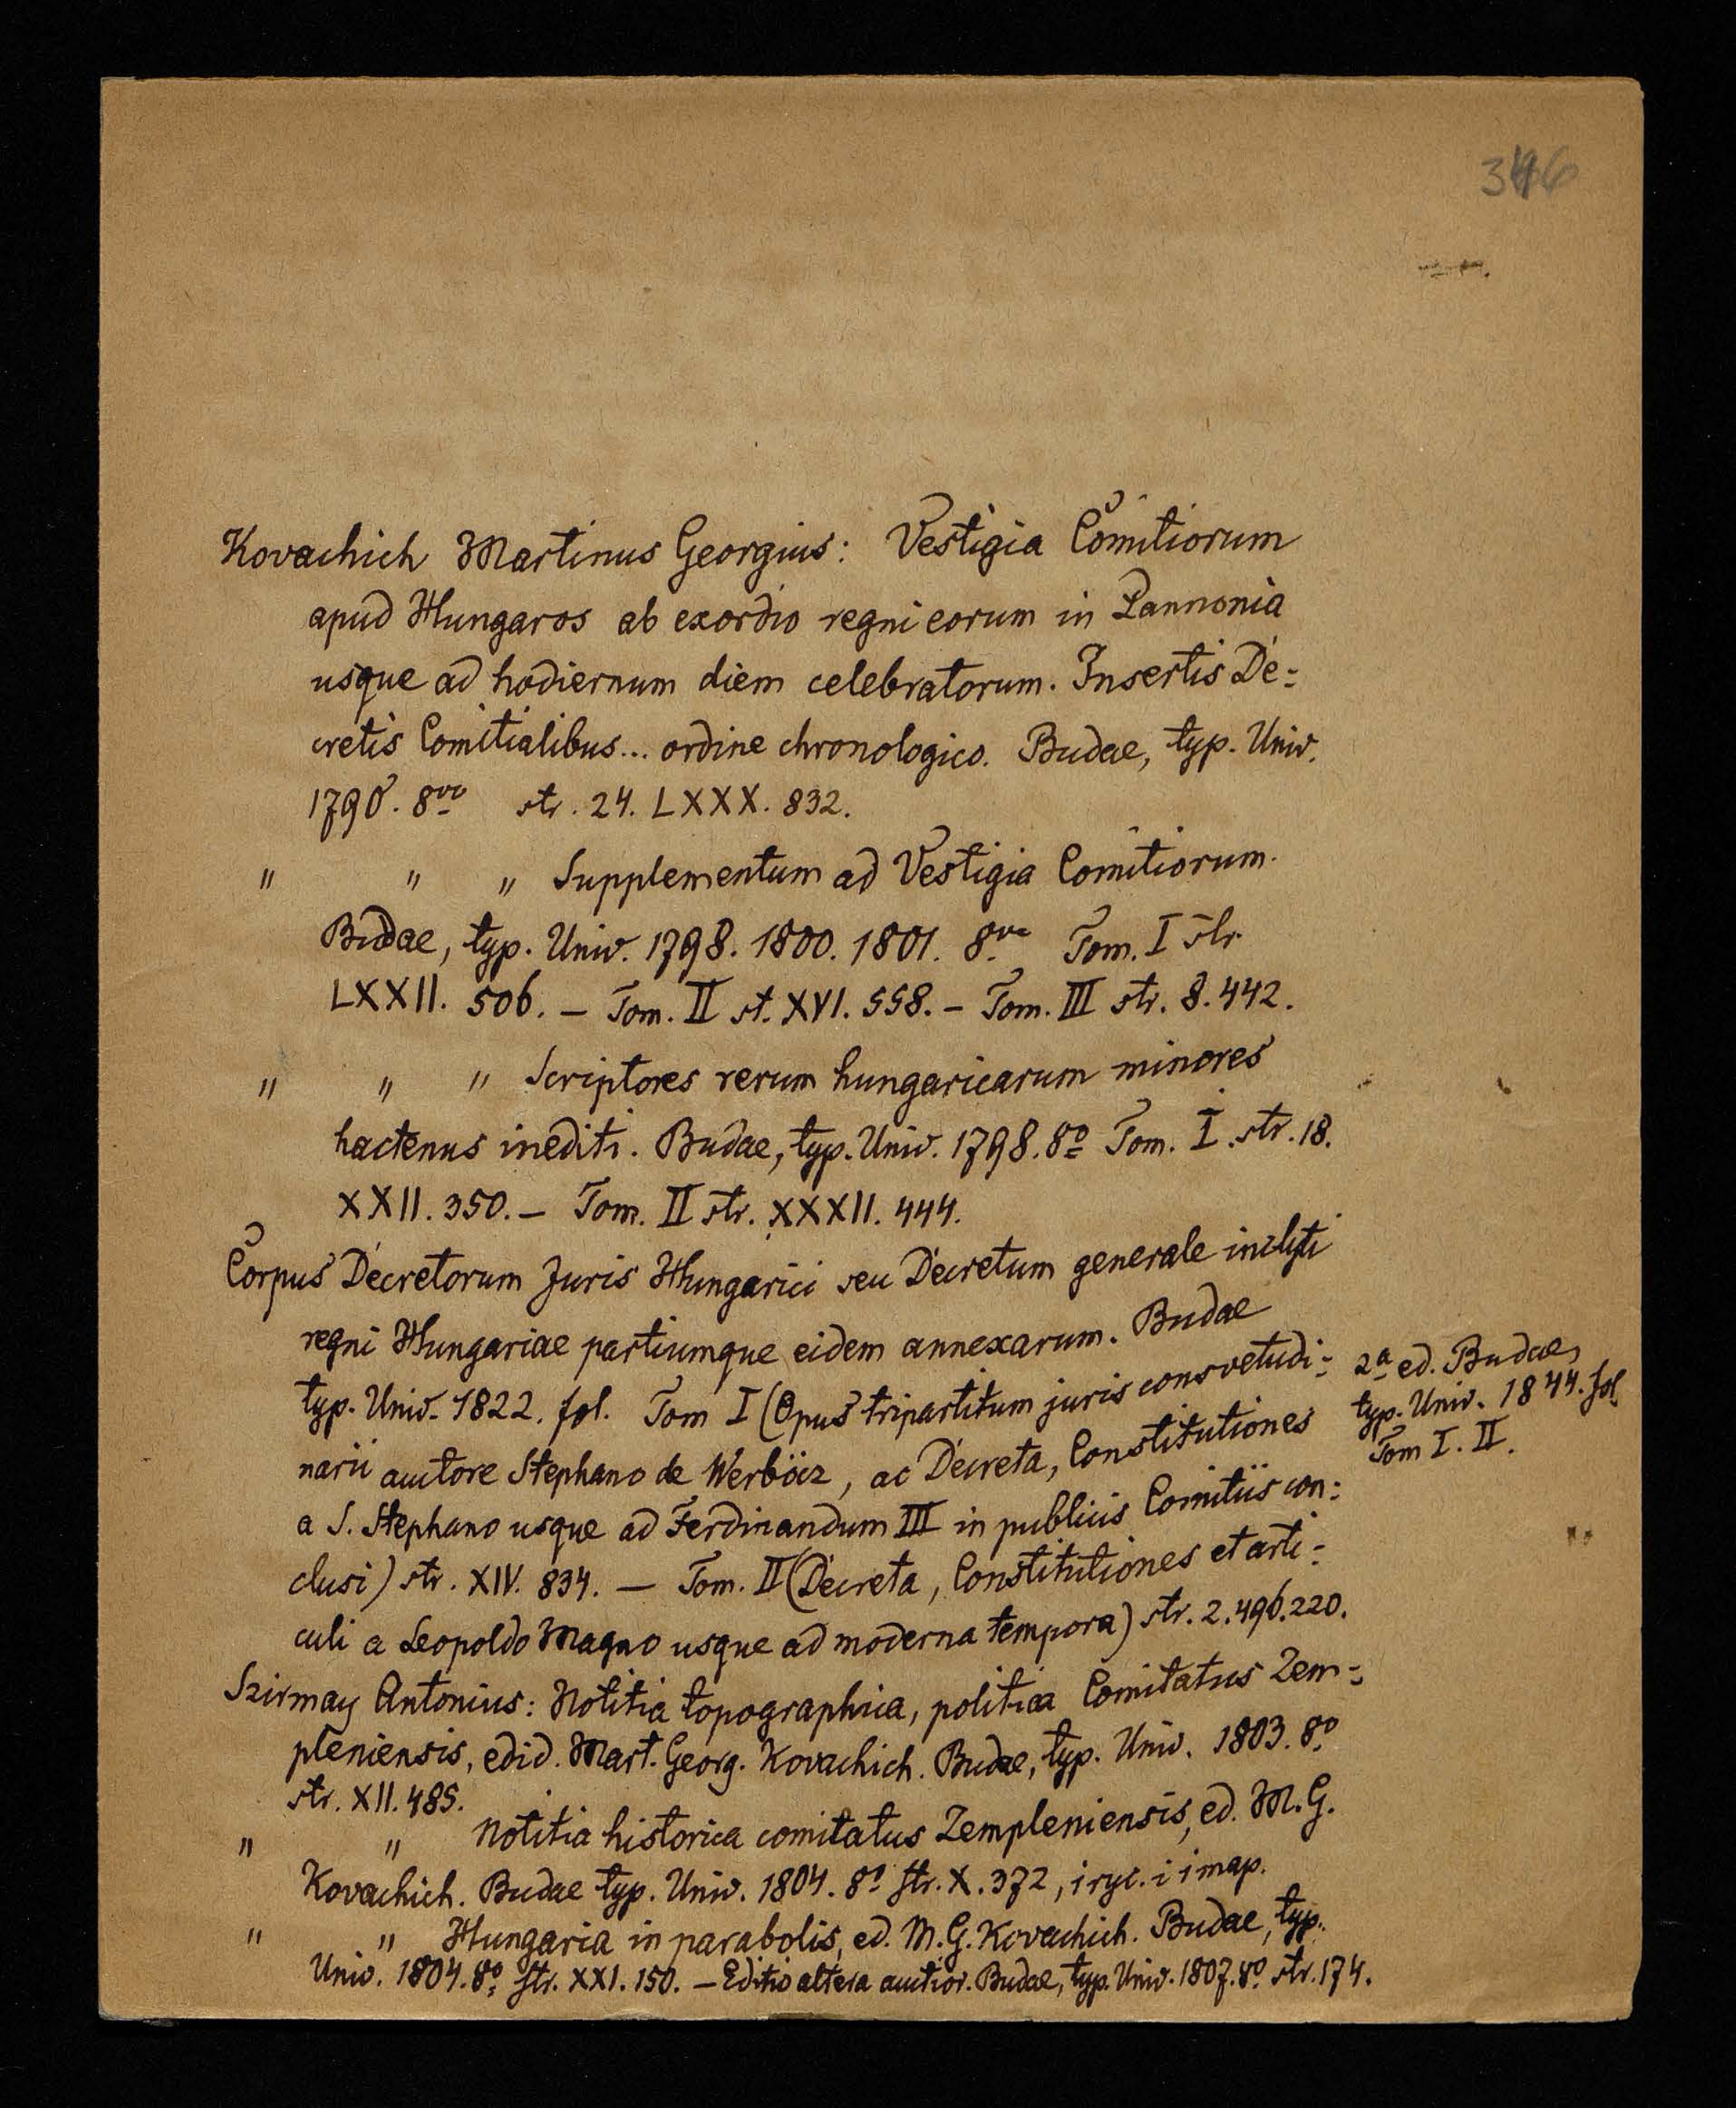 Kovachich Martinus Georgius: Vestigia Comitiorum
apud Hungaros ab exordio regni eorum in Pannonia
usque ad hodiernum diem celebratorum. Insertis De=
cretis Comitialibus... ordine chronologico. Budae, typ. Univ.
1790. 8vo str. 24. LXXX. 832.
" " " Supplementum ad Vestigia Comitiorum.
Budae, typ. Univ. 1798. 1800. 1801. 8vo Tom. I str.
LXXII. 506. – Tom. II st. XVI. 558. – Tom. III str. 8. 442.
" " " Scriptores rerum hungaricarum minores
hactenus inediti. Budae, typ. Univ. 1798. 8o Tom. I. str. 18.
XXII. 350. – Tom. II str. XXXII. 444.
Corpus Decretorum Juris Hungarici seu Decretum generale inclyti
regni Hungariae partiumque eidem annexarum. Budae
typ. Univ. 1822. fol. Tom I (Opus tripartitum juris consvetudi=
narii auctore Stephano de Werböcz, ac Decreta, Constitutiones
a S. Stephano usque ad Ferdinandum III in publicis Comitiis con=
clusi) str. XIV. 834. — Tom. II (Decreta, Constitutiones et arti=
culi a Leopoldo Magno usque ad moderna tempora) str. 2. 496. 220.
2a ed. Budae,
typ. Univ. 1844. fol
Tom I. II.
Szirmay Antonius: Notitia topographica, politica Comitatus Zem=
pleniensis, edid. Mart. Georg. Kovachich. Budae, typ. Univ. 1803. 8o
str. XII. 485.
" " Notitia historica comitatus Zempleniensis, ed. M. G.
Kovachich. Budae typ. Univ. 1804. 8o str. X. 372, 1 ryc. i 1 map.
" " Hungaria in parabolis, ed. M. G. Kovachich. Budae, typ.
Univ. 1804. 8o str. XXI. 150. – Editio altera auctior. Budae, typ. Univ. 1807. 8o str. 174.